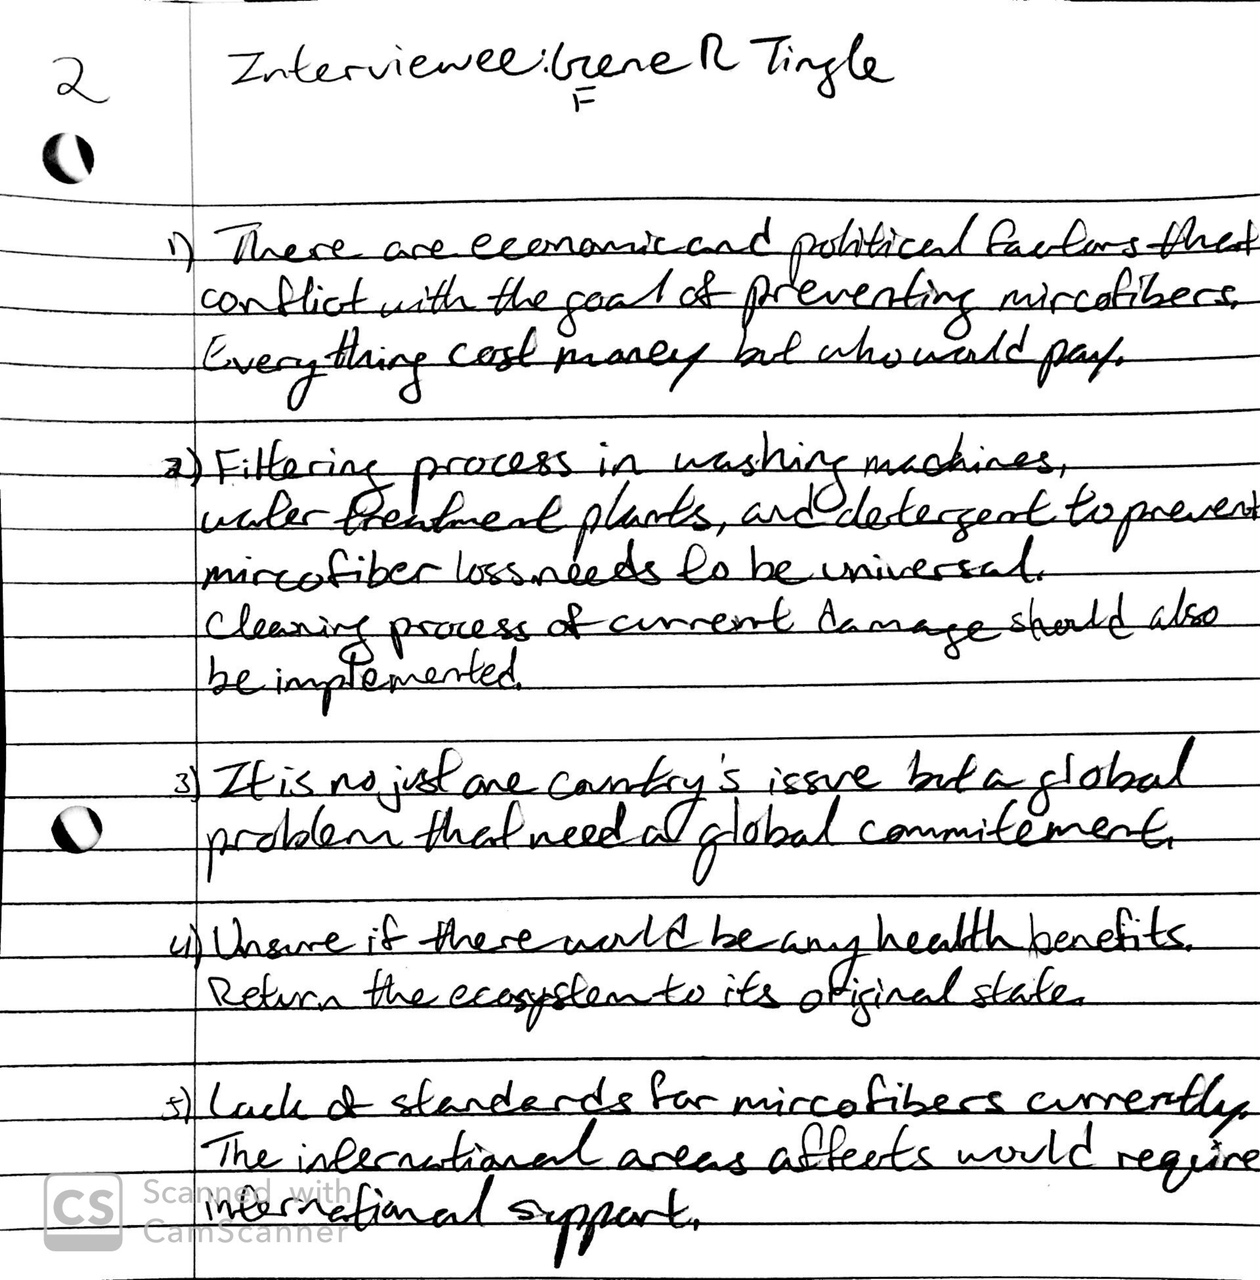 2
Interviewee: Irene R Tingle
F
1) There are economic and political factors that
conflict with the goal of preventing mircofibers.
Everything cost money but who would pay.
2) Filtering process in washing machines,
water treatment plants, and detergent to prevent
mircofiber loss needs to be universal.
Cleaning process of current damage should also
be implemented.
3) It is no just one country's issue but a global
problem that need a global commitement.
4) Unsure if there would be any health benefits.
Return the ecosystem to its original state.
5) Lack of standards for mircofibers currently.
The international areas affects would require
international support.
CS Scanned with
CamScanner